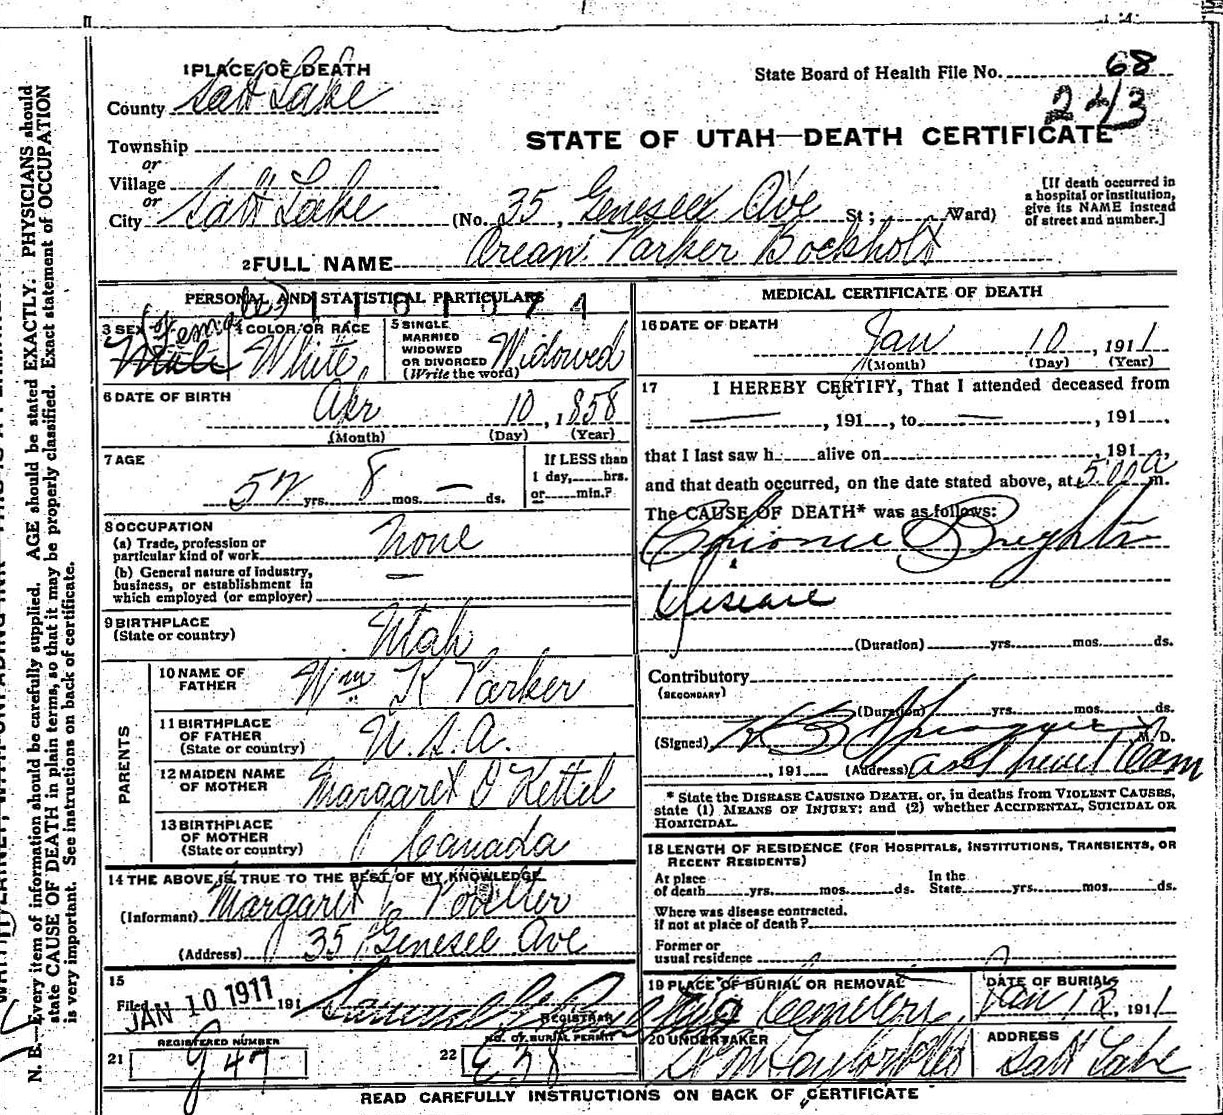 1 PLACE OF DEATH
State Board of Health File No. 68
County Salt Lake
243
STATE OF UTAH—DEATH CERTIFICATE
Township
or
Village
or
City Salt Lake (No. 35, Genesee Ave St; Ward)
[If death occurred in
a hospital or institution,
give its NAME instead
of street and number.]
2 FULL NAME Orean Parker Bockholt
PERSONAL AND STATISTICAL PARTICULARS
3 SEX Male Female
4 COLOR OR RACE White
5 SINGLE
MARRIED
WIDOWED
OR DIVORCED
(Write the word) Widowed
6 DATE OF BIRTH
Apr 10, 1858
(Month) (Day) (Year)
7 AGE
52 yrs. 8 mos. — ds.
If LESS than
1 day, hrs.
or min.?
8 OCCUPATION
(a) Trade, profession or
particular kind of work None
(b) General nature of industry,
business, or establishment in
which employed (or employer) —
9 BIRTHPLACE
(State or country) Utah
PARENTS
10 NAME OF
FATHER Wm K Parker
11 BIRTHPLACE
OF FATHER
(State or country) U.S.A.
12 MAIDEN NAME
OF MOTHER Margaret D Kettel
13 BIRTHPLACE
OF MOTHER
(State or country) Canada
14 THE ABOVE IS TRUE TO THE BEST OF MY KNOWLEDGE
(Informant) Margaret
(Address) 35 Genesee Ave
15
Filed JAN 10 1911 191
REGISTRAR
REGISTERED NUMBER
21 J 47
NO. OF BURIAL PERMIT
22 E38
MEDICAL CERTIFICATE OF DEATH
16 DATE OF DEATH
Jan 10, 1911
(Month) (Day) (Year)
17 I HEREBY CERTIFY, That I attended deceased from
—, 191, to —, 191,
that I last saw h alive on 191,
and that death occurred, on the date stated above, at 5:00 a m.
The CAUSE OF DEATH* was as follows:
Chronic Brights
Disease
(Duration) yrs. mos. ds.
Contributory
(SECONDARY)
(Duration) yrs. mos. ds.
(Signed) M. D.
, 191 (Address)
* State the DISEASE CAUSING DEATH, or, in deaths from VIOLENT CAUSES,
state (1) MEANS OF INJURY; and (2) whether ACCIDENTAL, SUICIDAL OR
HOMICIDAL.
18 LENGTH OF RESIDENCE (FOR HOSPITALS, INSTITUTIONS, TRANSIENTS, OR
RECENT RESIDENTS)
At place
of death yrs. mos. ds.
In the
State yrs. mos. ds.
Where was disease contracted,
if not at place of death?
Former or
usual residence
19 PLACE OF BURIAL OR REMOVAL
City Cemetery
DATE OF BURIAL
Jan 12, 1911
20 UNDERTAKER
ADDRESS
Salt Lake
READ CAREFULLY INSTRUCTIONS ON BACK OF CERTIFICATE
N. B.—Every item of information should be carefully supplied. AGE should be stated EXACTLY. PHYSICIANS should
state CAUSE OF DEATH in plain terms, so that it may be properly classified. Exact statement of OCCUPATION
is very important. See instructions on back of certificate.